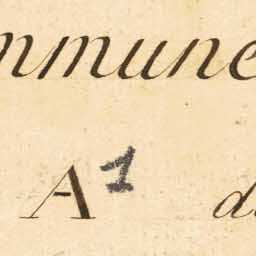 mmune
A¹ d